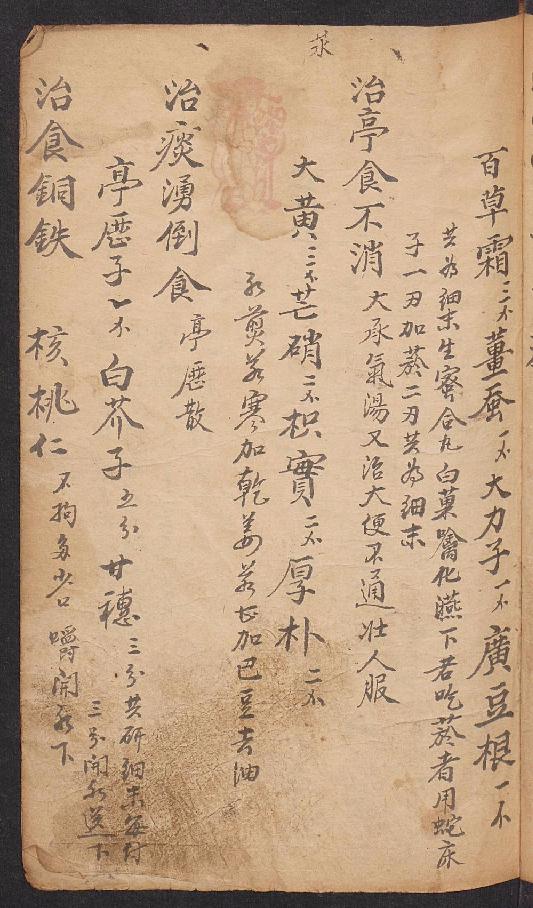 百草霜三不薑蚕一不大力子一不廣豆根一不
共為细末生蜜合丸白菓噙化嚥下若吃菸者用蛇床
子一刃加菸二刃共為细末
治亭食不消大承氣湯又治大便不通壮人服
大黄三不芒硝二不枳實二不厚朴二不
水煎若寒加乾姜若加巴豆去油
治痰湧倒食亭厯散
亭厯子不白芥子五分甘穗三分共研细末每付
三分開水送下
治食銅鉄 核桃仁不拘多少嚼開水下